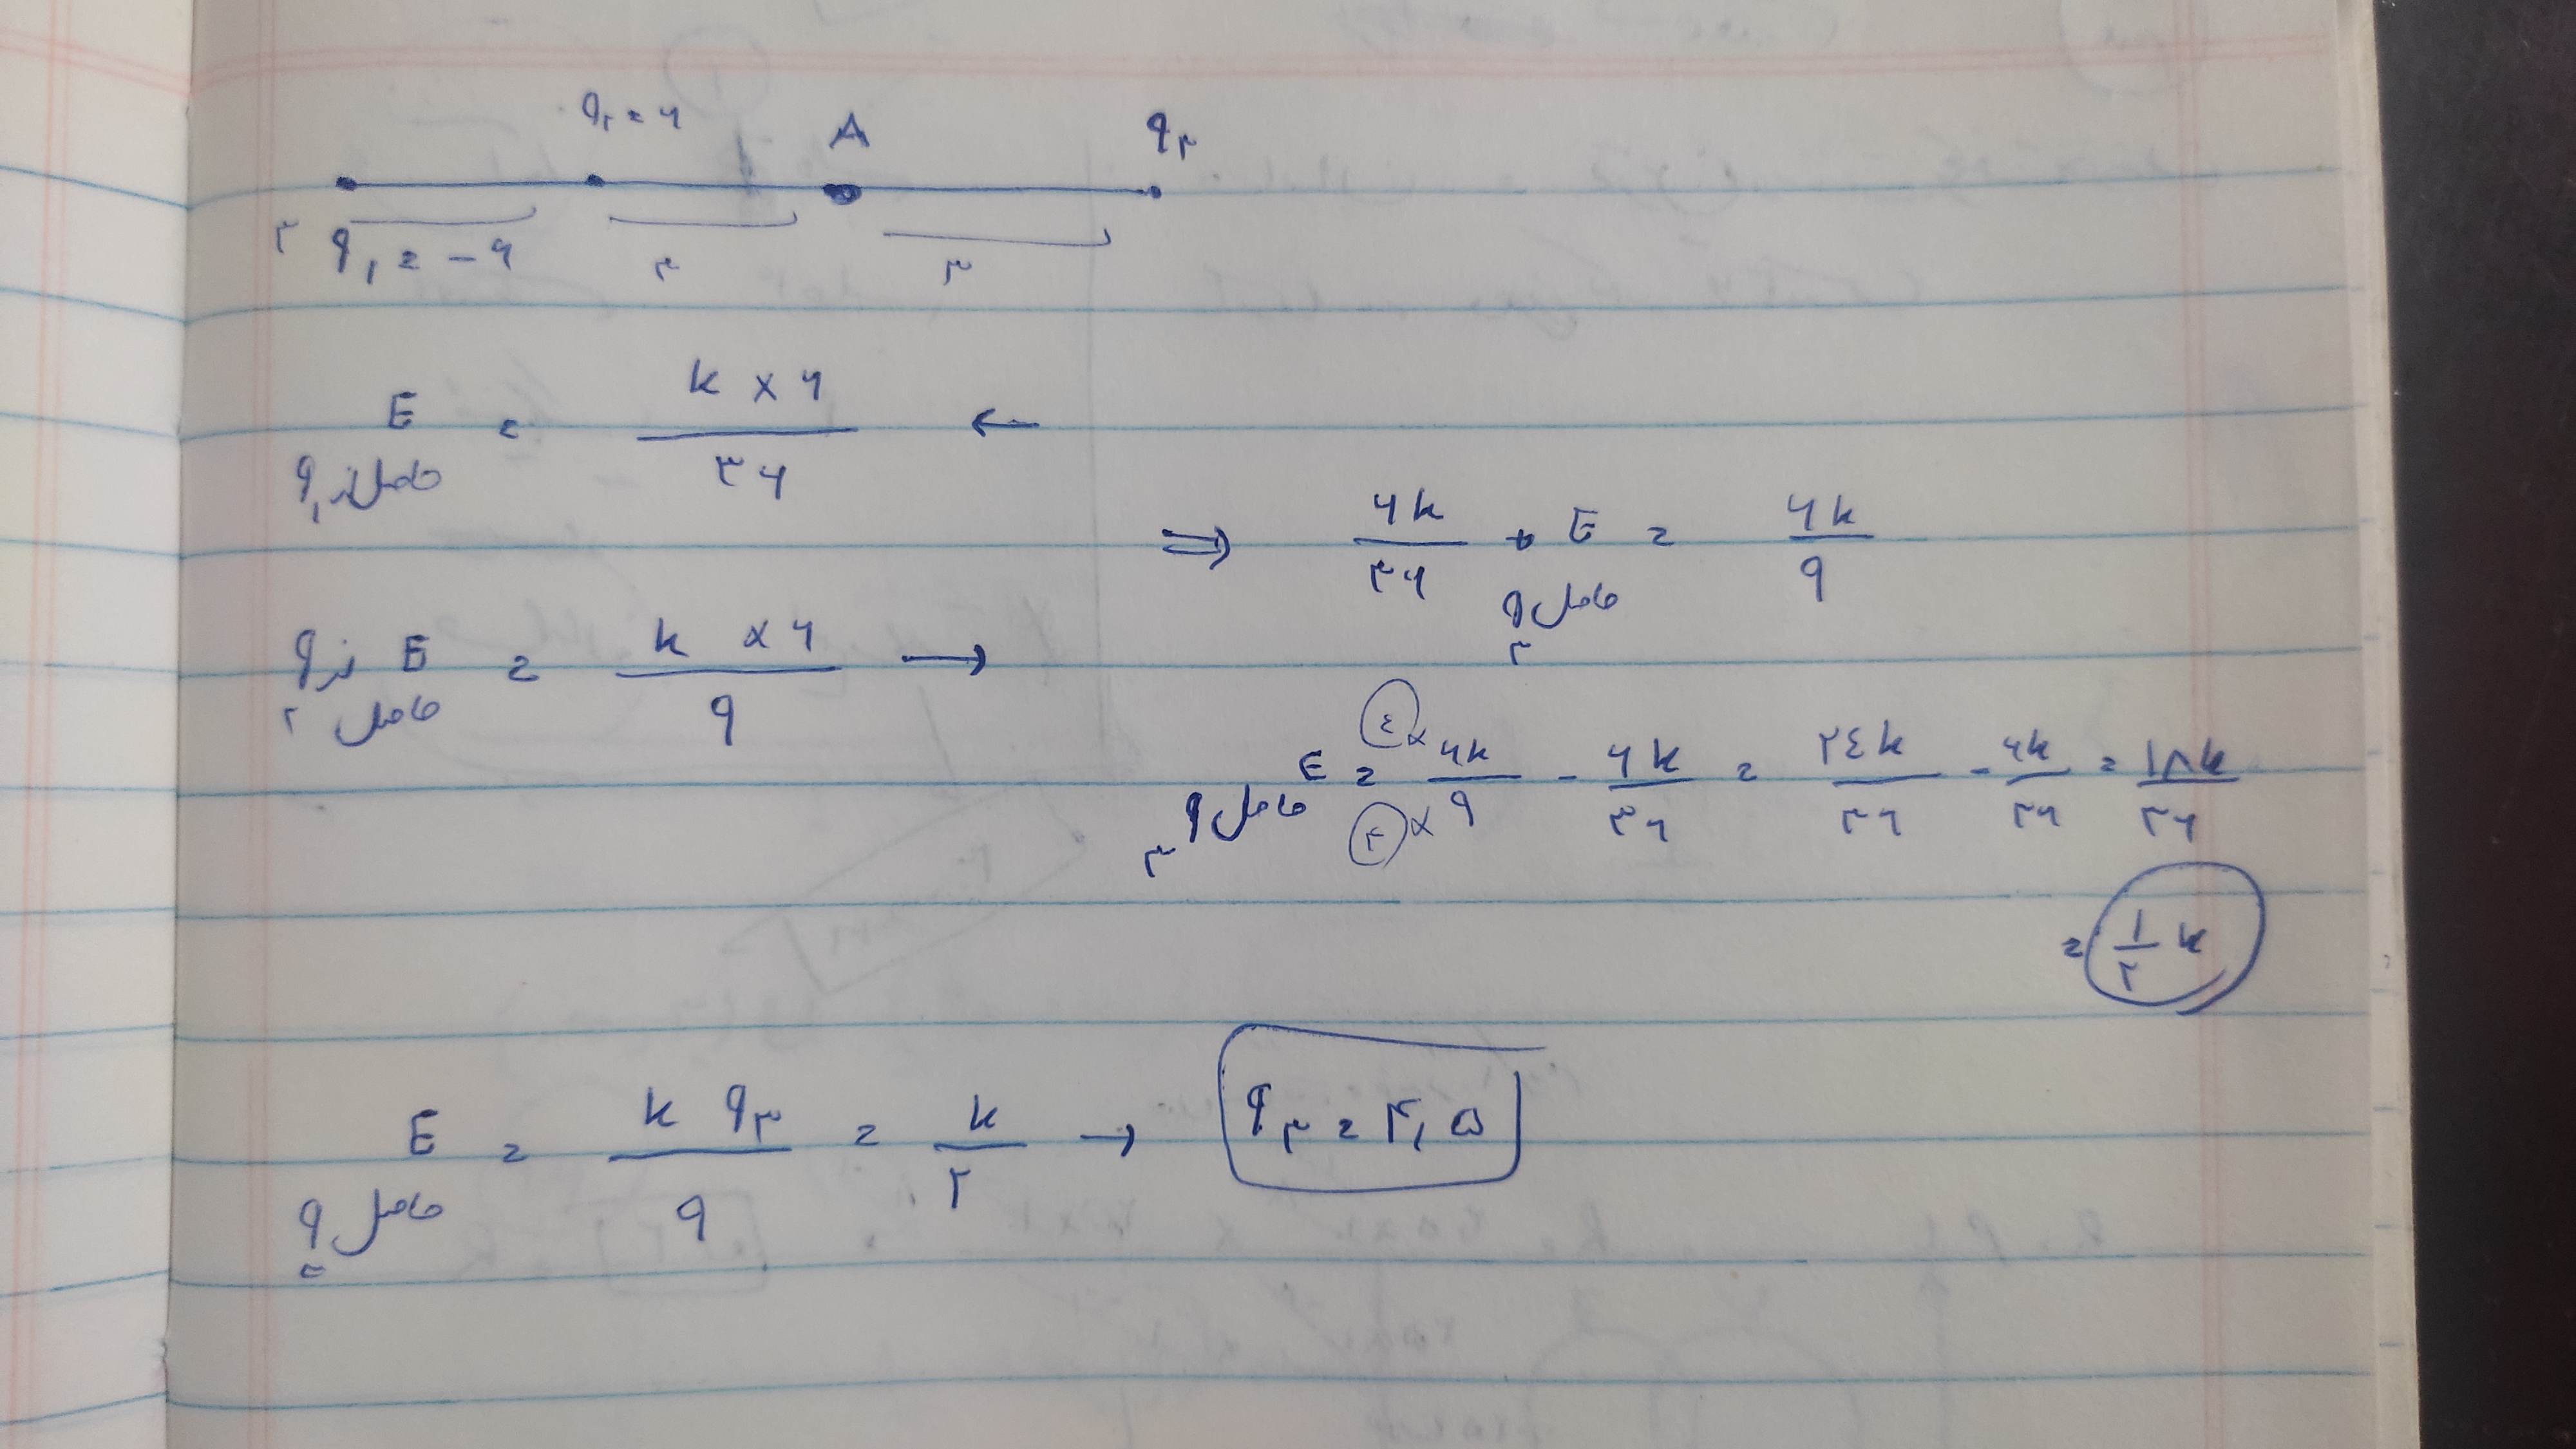 q۲ = ۶ A q۳
۳ q۱ = -۶ ۳ ۳
E حاصل از q۱ = k × ۶ / ۳۶ ←
⇒ ۶k / ۳۶ + E حاصل q۳ = ۶k / ۹
E حاصل از q۲ = k × ۶ / ۹ →
E حاصل q۳ = ٤ × ۶k / ٤ × ۹ - ۶k / ۳۶ = ۲٤k / ۳۶ - ۶k / ۳۶ = ۱۸k / ۳۶
= ۱/۲ k
E حاصل q۳ = k q۳ / ۹ = k / ۲ → q۳ = ۴,۵